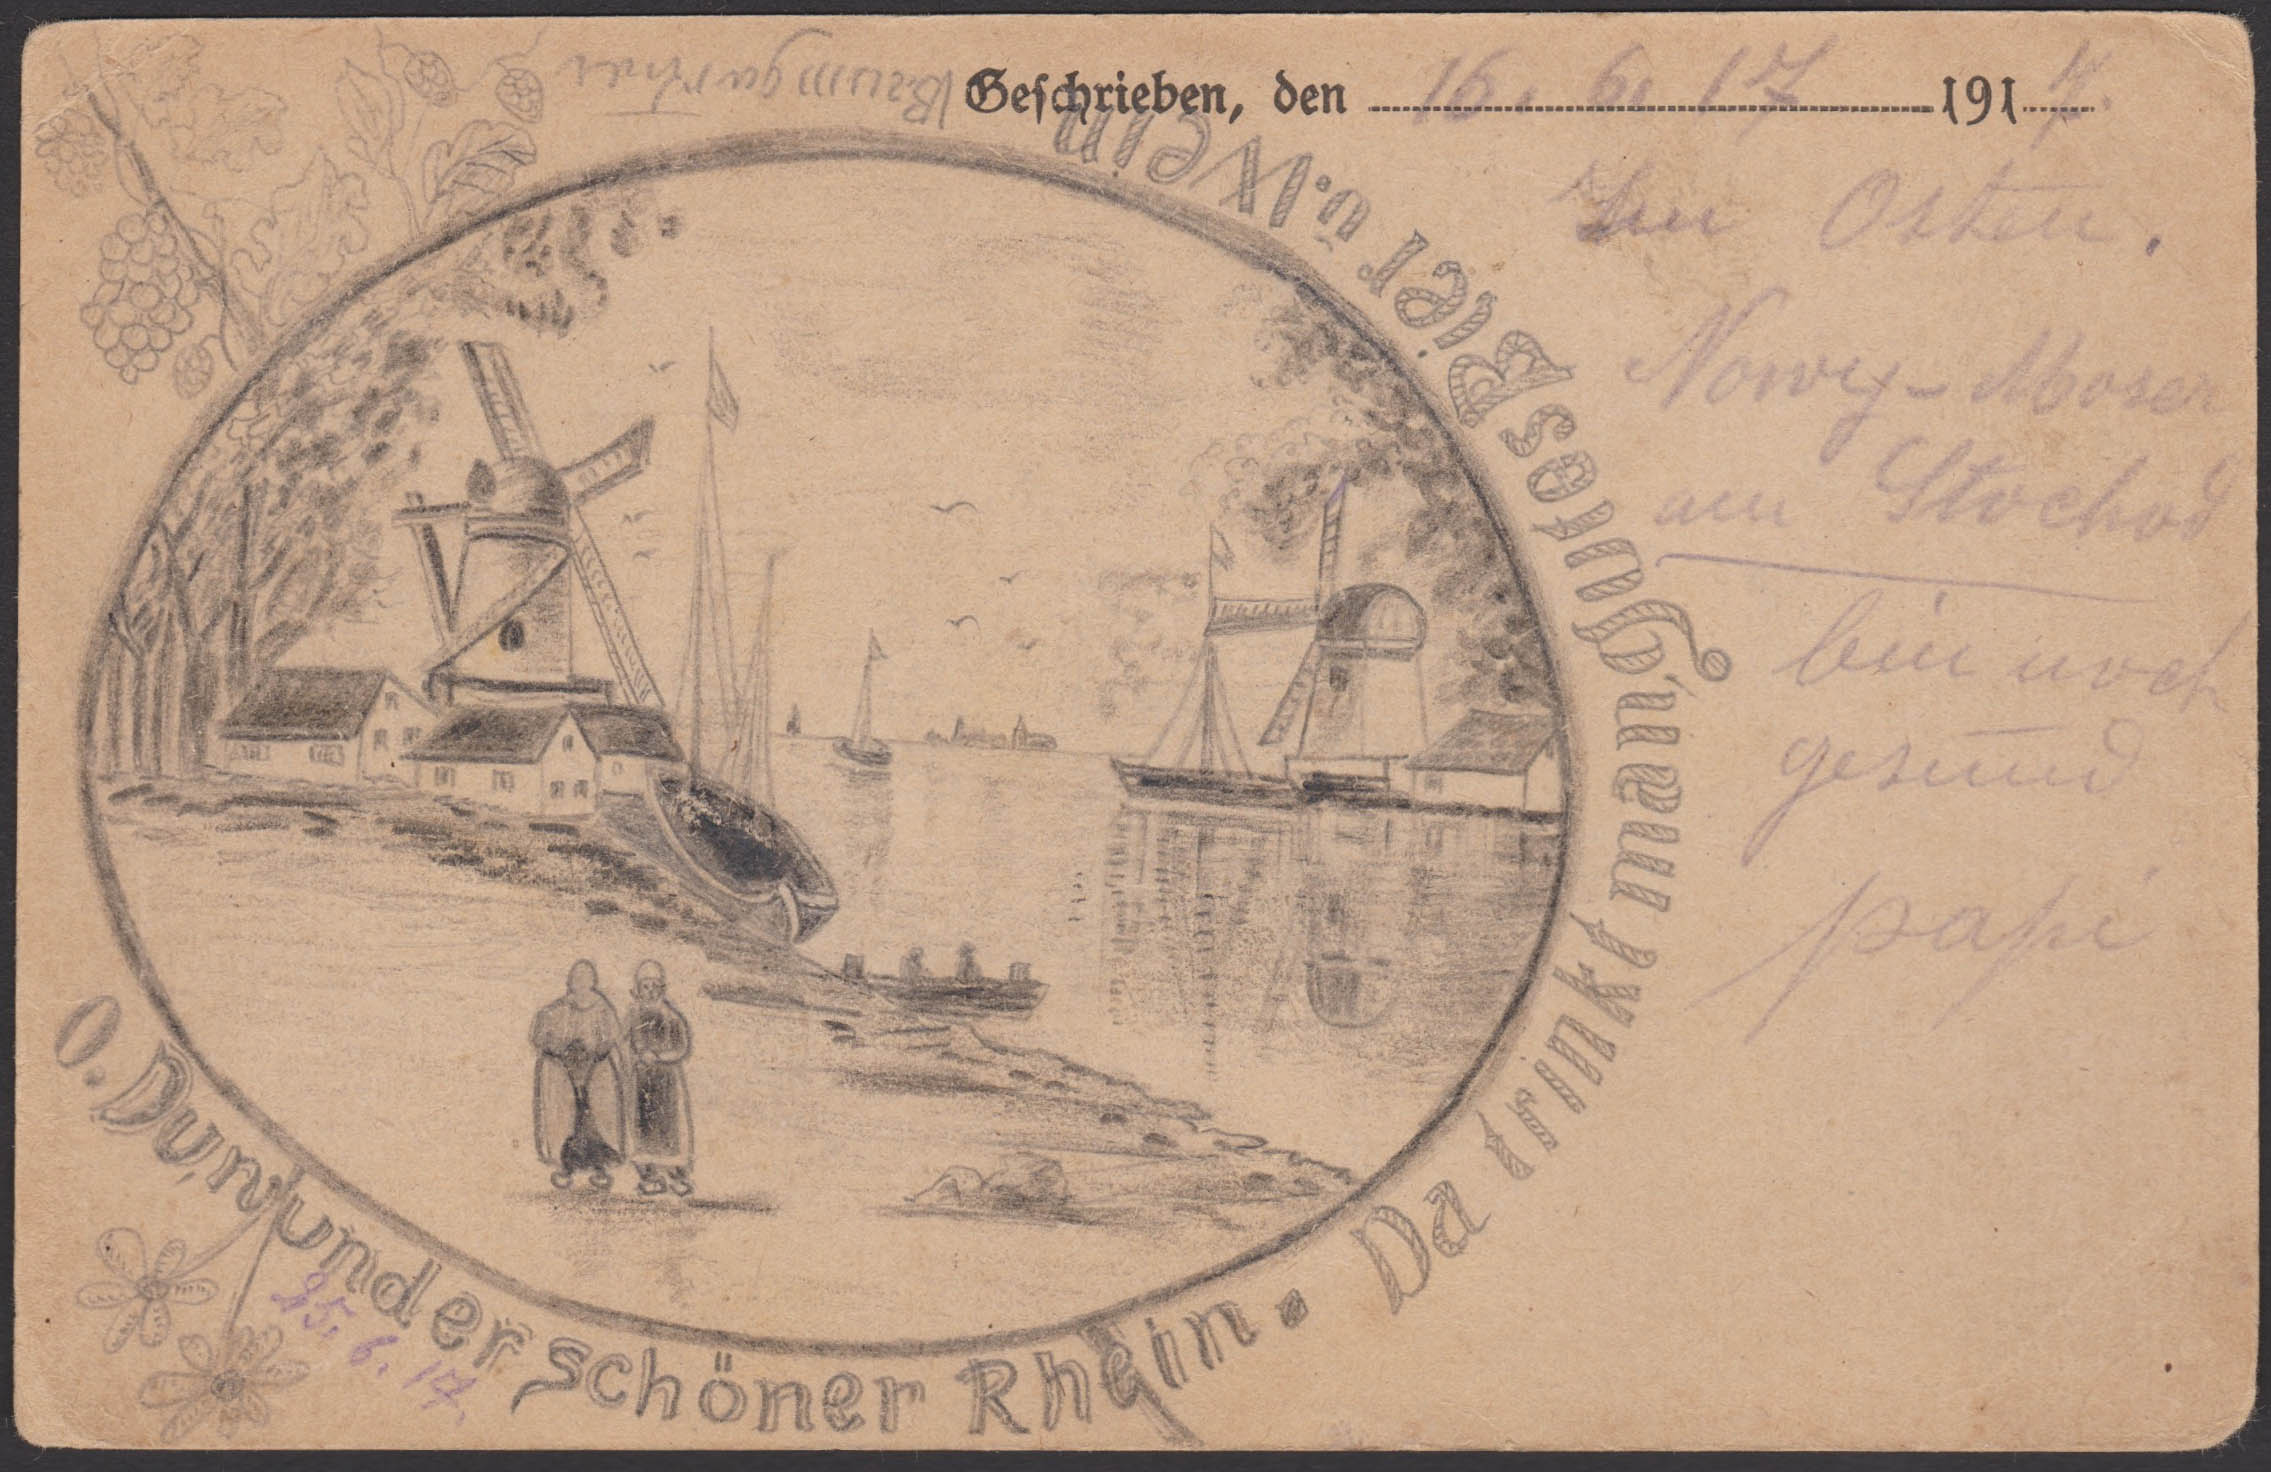 Baumgartner
Geschrieben, den 16. 6. 17 1917.
Im Osten.
Nowy-Moser
am Stochod
bin noch
gesund
papi
O. Du, wunder schöner Rhein. Da trinkt man, gutes Bier u. Wein
25. 6. 17.